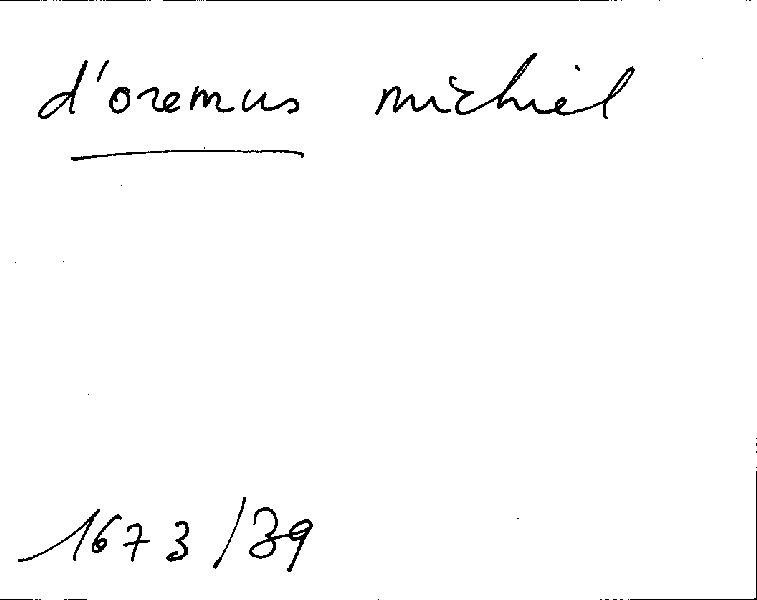 d'oremus michiel
1673/39